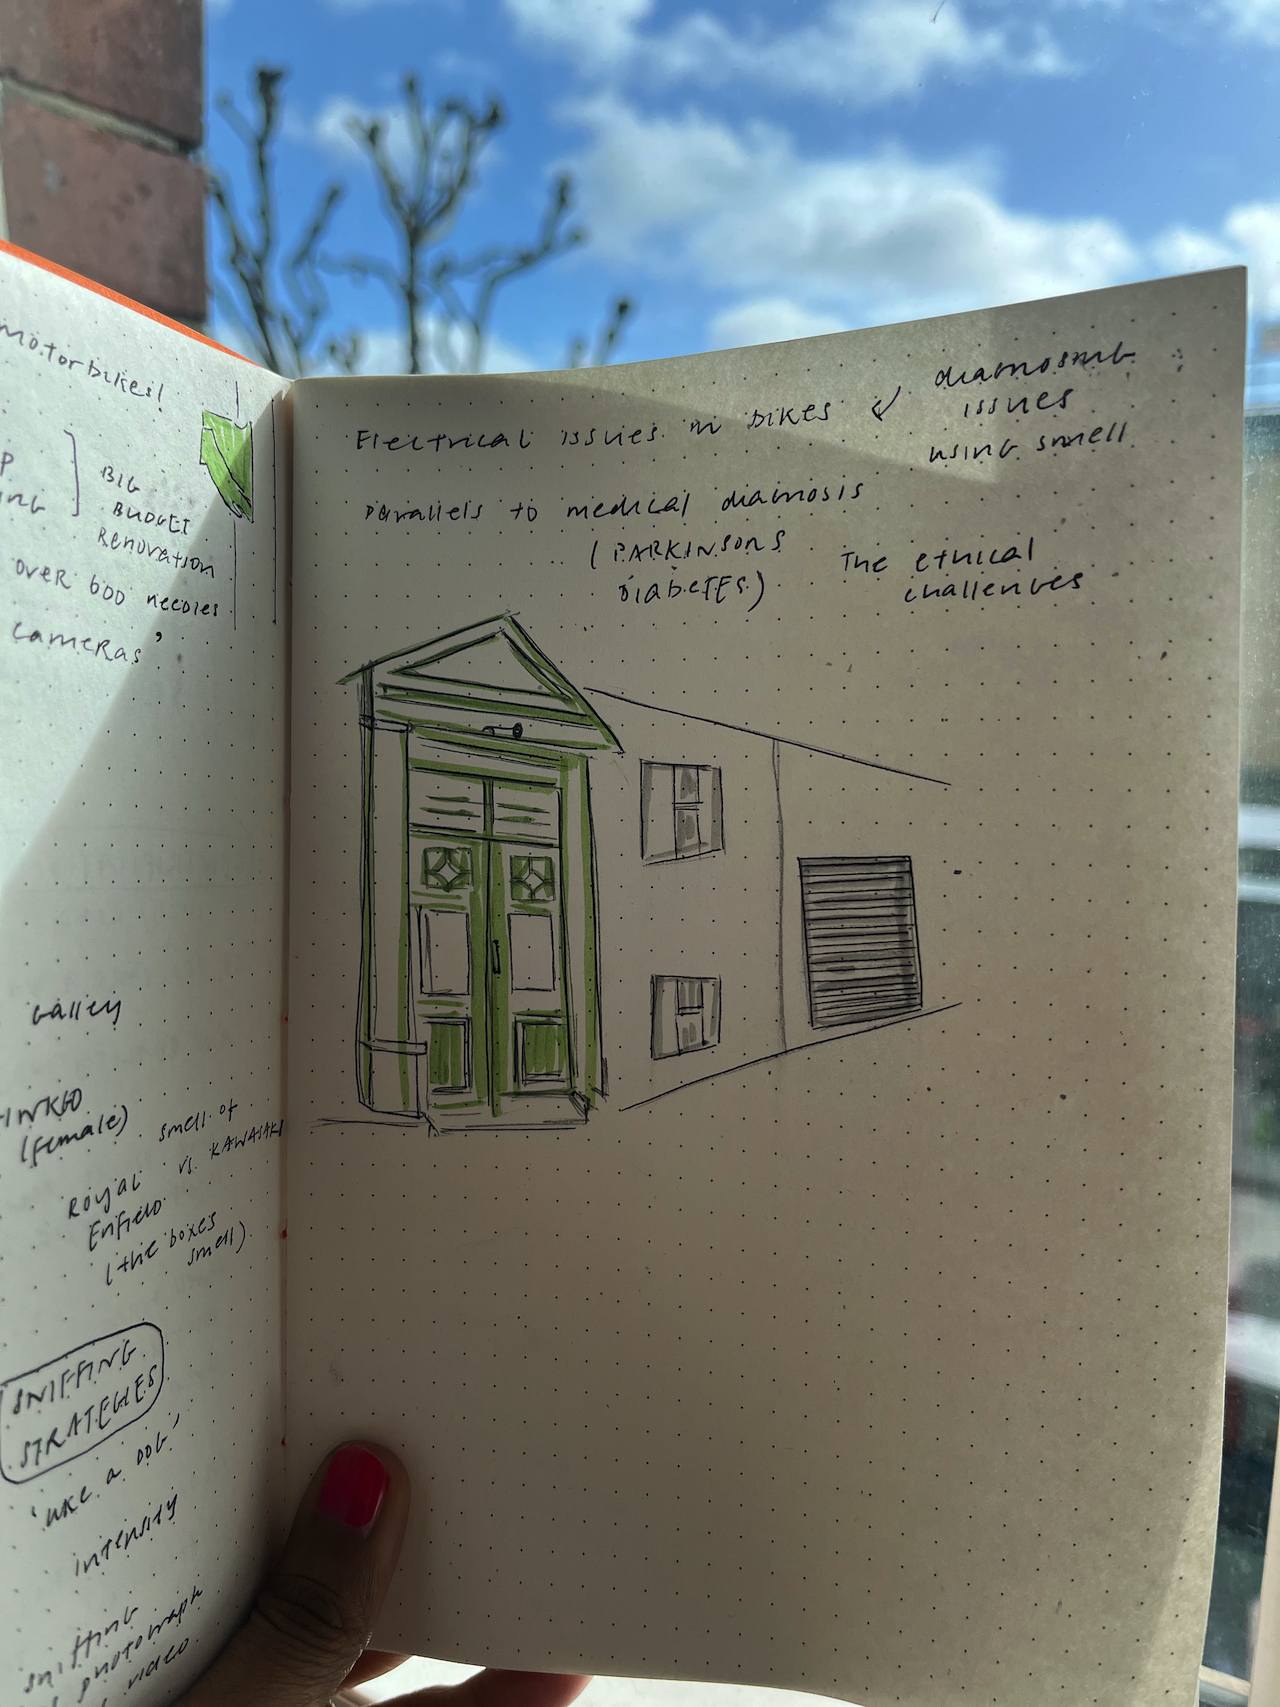 motorbikes!
BIG
BUDGET
Renovation
over 600 needles
cameras'
Galley
(female)
smell of
Royal vs. KAWASAKI
Enfield
(the boxes
smell)
SNIFFING
STRATEGIES
'like a dog'
intensity
sniffing
photograph
video
Electrical issues in bikes & diagnosing
issues
using smell
parallels to medical diagnosis
(PARKINSONS
DIABETES)
The ethical
challenges